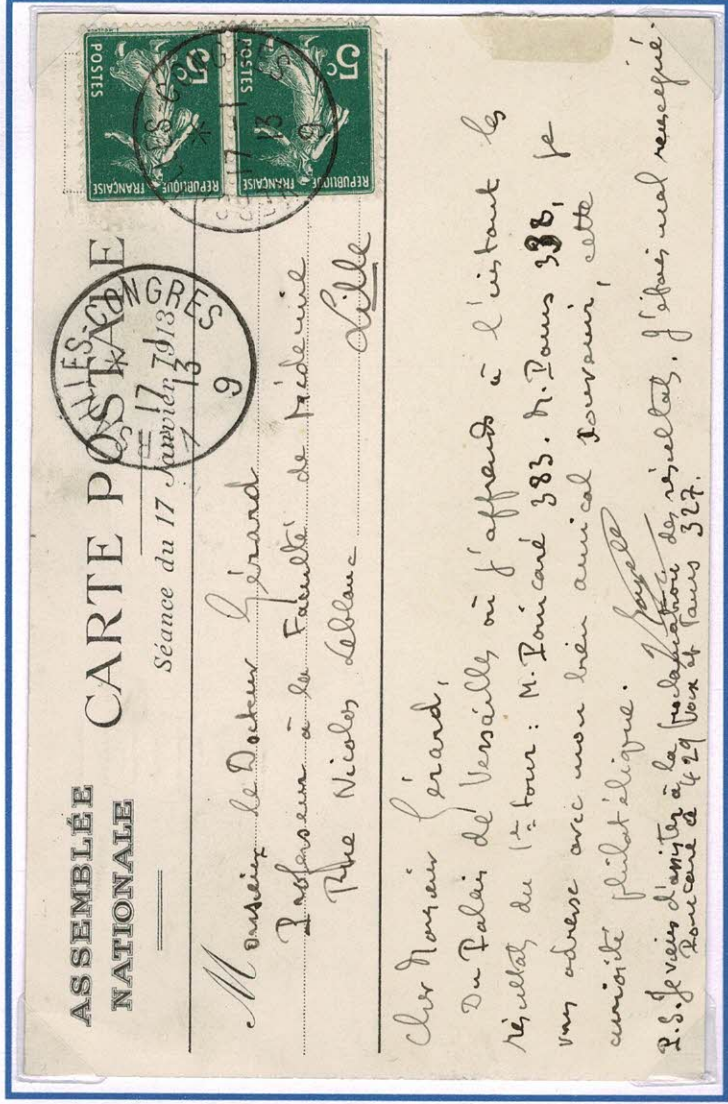 ASSEMBLÉE
NATIONALE
CARTE POSTALE
Séance du 17 Janvier 1913
5c
POSTES
REPUBLIQUE FRANÇAISE
5c
POSTES
REPUBLIQUE FRANÇAISE
17 - 1
13
9
VERSAILLES-CONGRES
*
17 - 1
13
9
Monsieur le Docteur Gérard
Professeur à la Faculté de Médecine
Rue Nicolas Leblanc
Lille
Cher Monsieur Gérard,
Du Palais de Versailles où j'apprends à l'instant les
résultats du 1er tour : M. Poincaré 383. M. Pams 338, je
vous adresse avec mon bien amical souvenir, cette
curiosité philatélique.
P.S. Je viens d'assister à la proclamation des résultats. J'étais mal renseigné.
Poincaré a 429 voix et Pams 327.